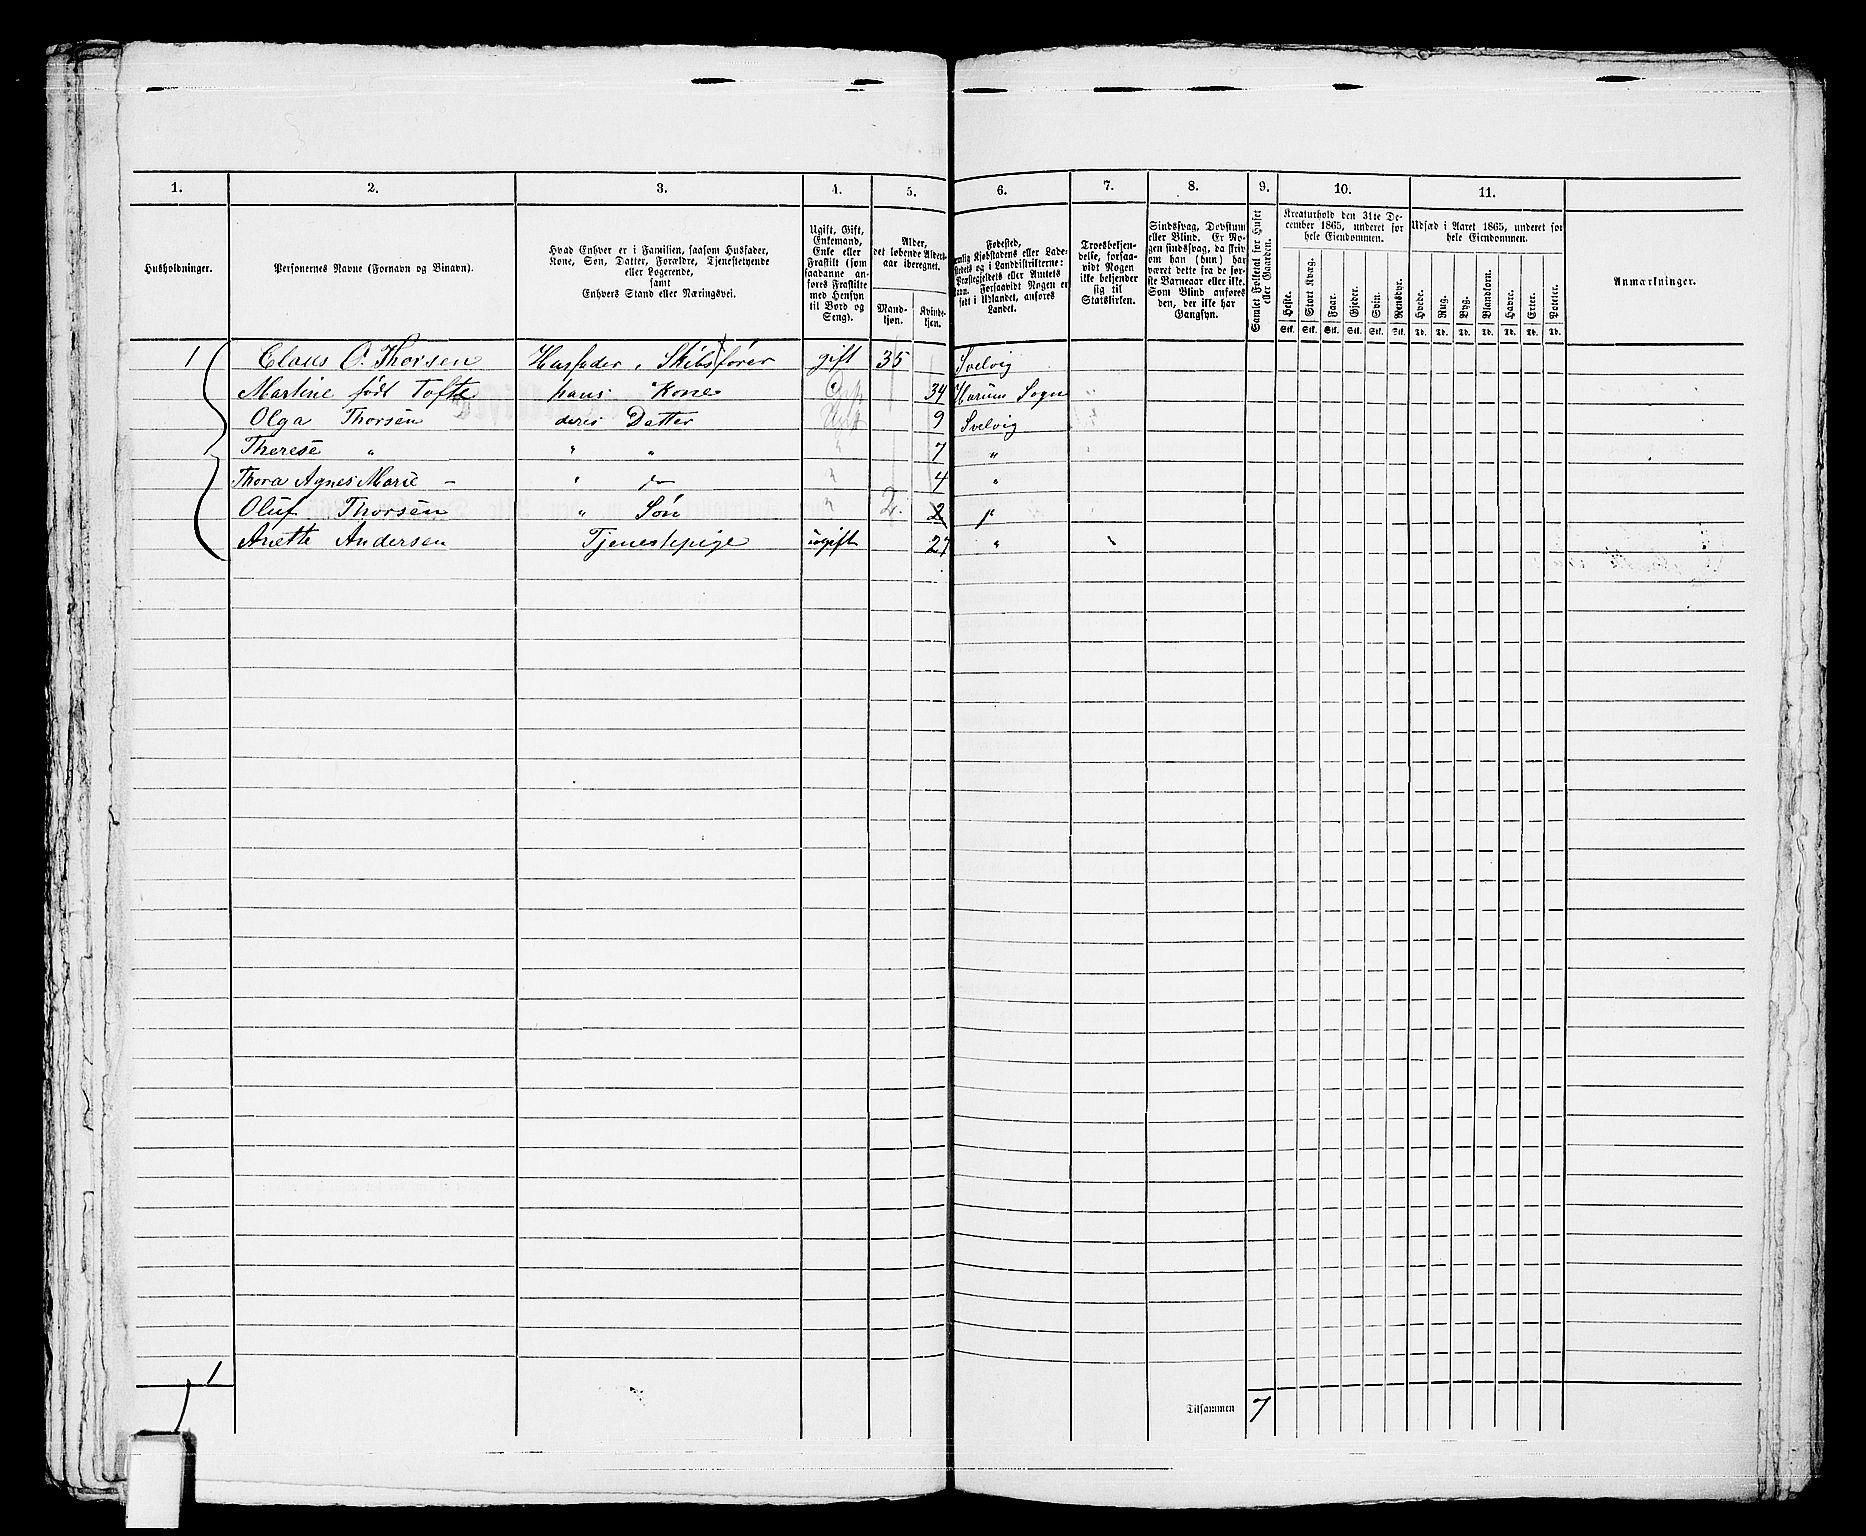 1. 2. 3. 4. 5. 6. 7. 8. 9. 10. 11.
Husholdninger.
Personernes Navne (Fornavn og Binavn).
Hvad Enhver er i Familien, saasom Husfader,
Kone, Søn, Datter, Forældre, Tjenestetyende
eller Logerende,
samt
Enhvers Stand eller Næringsvei.
Ugift, Gift,
Enkemand,
Enke eller
Fraskilt (som
saadanne an-
føres Fraskilte
med Hensyn
til Bord og
Seng).
Alder,
det løbende Alders-
aar iberegnet.
Mand-
kjøn.
Kvinde-
kjøn.
Fødested,
Kjøbstadens eller Lade-
stedets og i Landdistrikterne:
Præstegjeldets eller Amtets
Navn. Forsaavidt Nogen er
født i Udlandet, anføres
Landet.
Troesbekjen-
delse, forsaa-
vidt Nogen
ikke bekjender
sig til
Statskirken.
Sindssvag, Døvstum
eller Blind. Er No-
gen sindssvag, da skriv
om han (hun) har
været dette fra de før-
ste Barneaar eller ikke.
Som Blind anføres
den, der ikke har
Gangsyn.
Samlet Folketal for Huset
eller Gaarden.
Kreaturhold den 31te De-
cember 1865, underet for
hele Eiendommen.
Heste. Stort Kvæg. Faar. Gjeder. Svin. Rensdyr.
Stk. Stk. Stk. Stk. Stk. Stk.
Udsæd i Aaret 1865, underet for
hele Eiendommen.
Hvede. Rug. Byg. Blandkorn. Havre. Erter. Poteter.
Td. Td. Td. Td. Td. Td. Td.
Anmærkninger.
1 Claus O. Thorsen Husfader, Skibsfører gift 35 Svelvig
Martine født Tofte hans Kone Gift 34 Hurum Sogn
Olga Thorsen deres Datter Ugift 9 Svelvig
Therese " " " " 7 "
Thora Agnes Marie - " " 4 "
Oluf Thorsen " Søn " 2 2
Anette Andersen Tjenestepige ugift 27 "
1
Tilsammen 7